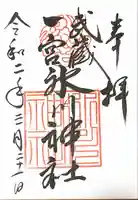 奉拝
武蔵
一宮氷川神社
令和二年三月三十一日